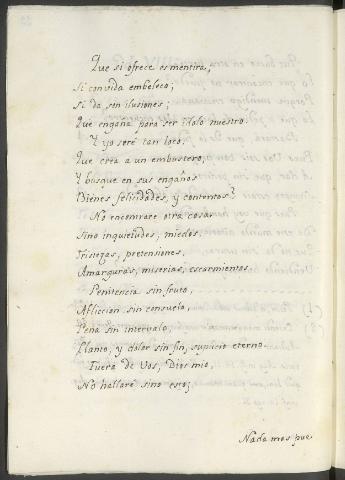 Que si ofrece es mentira,
Si convida embeleco;
Si da son ilusiones;
Que engaña para ser idolo nuestro.
Y yo seré tan loco,
Que crea a un embustero,
Y busque en sus engaños
Bienes felicidades, y contentos?
No encontrare otra cosa
Sino inquietudes, miedos,
Tristezas, pretensiones,
Amarguras, miserias, escarmientos.
Penitencia sin fruto,
Afliccion sin consuelo,
Pena sin intervalo,
Llanto, y dolor sin fin, suplicio eterno.
Fuera de Vos, Dios mio,
No hallaré sino esto;
Nada mos pue